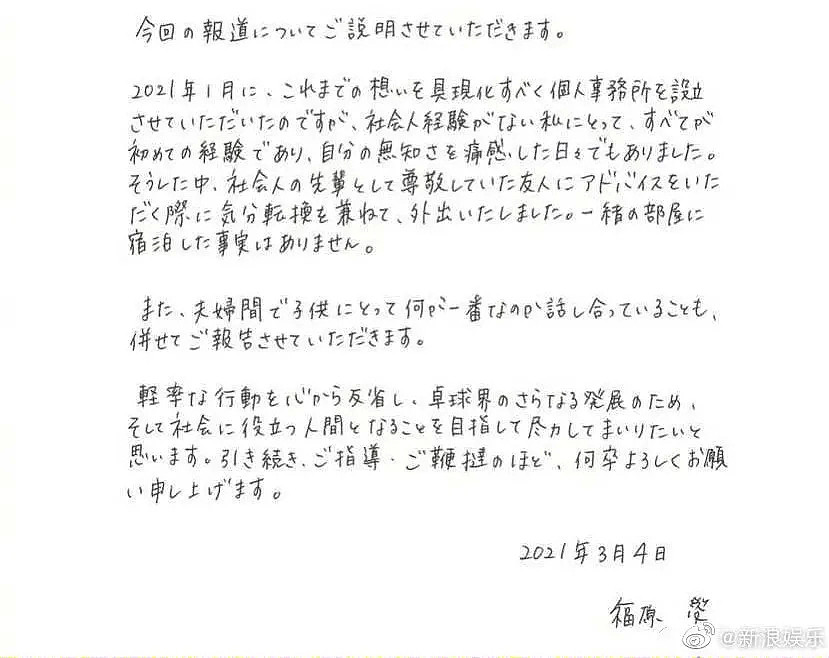 今回の報道についてご説明させていただきます。
2021年1月に、これまでの想いを具現化すべく個人事務所を設立
させていただいたのですが、社会人経験がない私にとって、すべてが
初めての経験であり、自分の無知さを痛感した日々でもありました。
そうした中、社会人の先輩として尊敬していた友人にアドバイスをいた
だく際に気分転換を兼ねて、外出いたしました。一緒の部屋に
宿泊した事実はありません。
また、夫婦間で子供にとって何が一番なのか話し合っていることも、
併せてご報告させていただきます。
軽率な行動を心から反省し、卓球界のさらなる発展のため、
そして社会に役立つ人間となることを目指して尽力してまいりたいと
思います。引き続き、ご指導・ご鞭撻のほど、何卒よろしくお願
い申し上げます。
2021年3月4日
福原 愛
@新浪娱乐